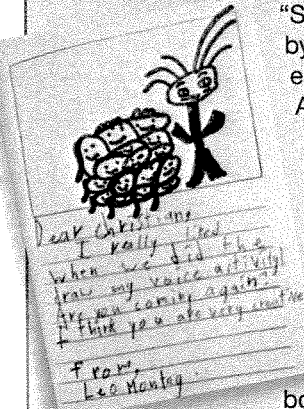 "S
by
e
A
Dear Christiane
I really liked
when we did the
draw my voice activity!
Are you coming again?
I think you are very creative
from,
Leo Montag
bo